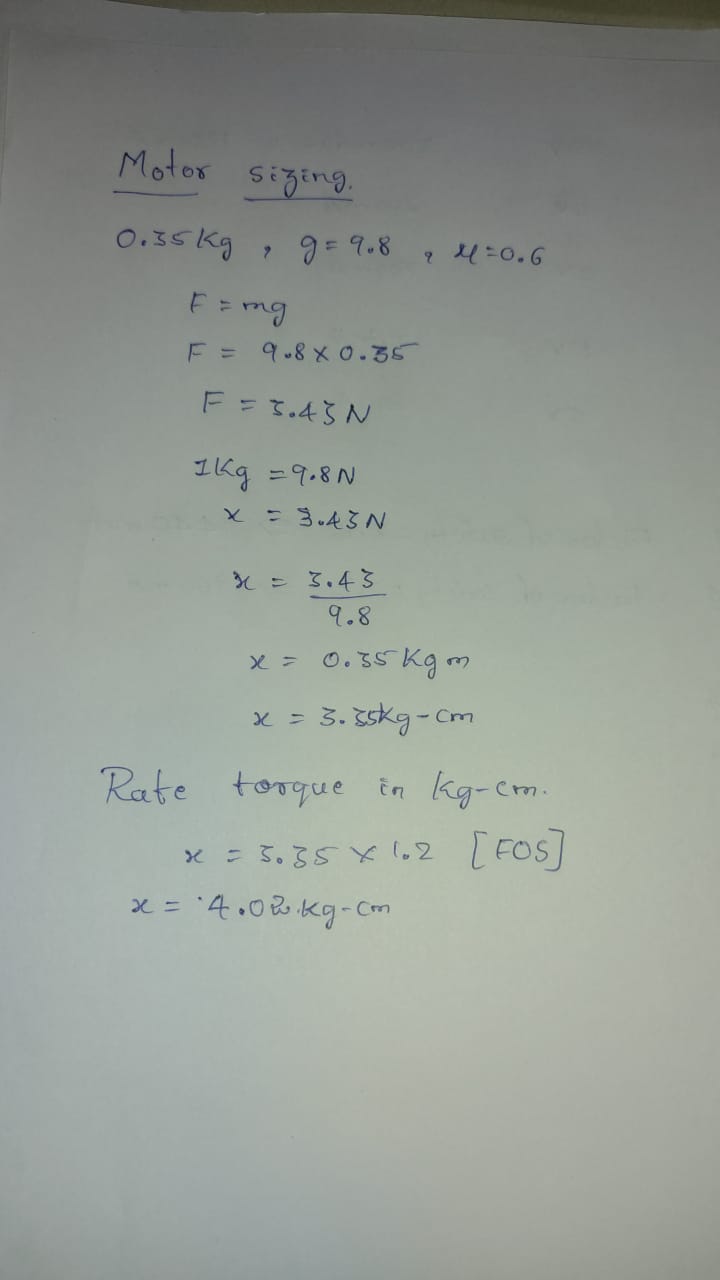 Motor sizing.
0.35 Kg , g = 9.8 , μ = 0.6
F = mg
F = 9.8 x 0.35
F = 3.43 N
1Kg = 9.8 N
x = 3.43 N
x = 3.43
9.8
x = 0.35 Kg m
x = 3.35kg-cm
Rate torque in kg-cm.
x = 3.35 x 1.2 [FOS]
x = 4.02 kg-cm